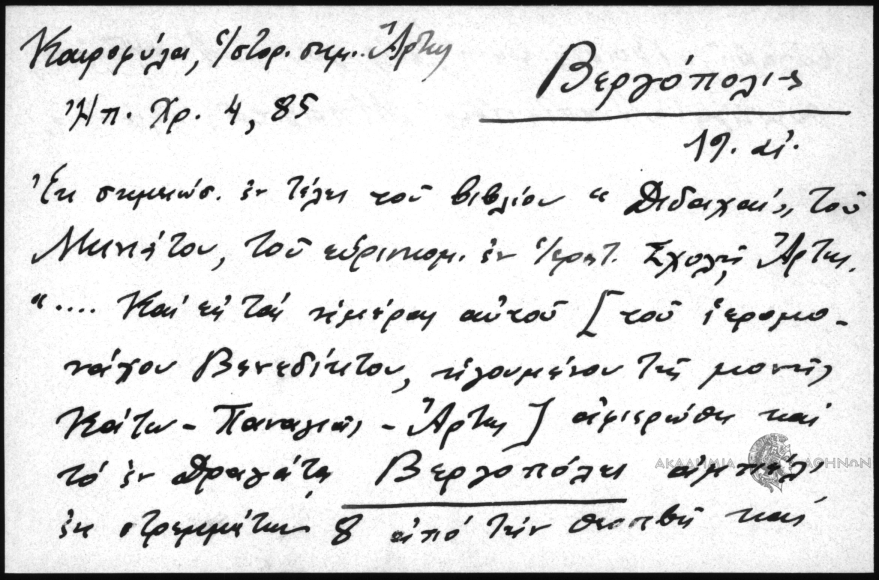 Καιρομύλαι, Ἱστορ. σημ. Ἄρτης
Βεργόπολις
Ἠπ. Χρ. 4, 85
19. αἰ.
Ἐκ σημειώσ. ἐν τέλει τοῦ βιβλίου "Διδαχαί" τοῦ
Μηνιάτου, τοῦ εὑρισκομ. ἐν Ἱερατ. Σχολῇ Ἄρτης.
".... Καί εἰς τάς ἡμέρας αὐτοῦ [τοῦ ἱερομο-
νάχου Βενεδίκτου, ἡγουμένου τῆς μονῆς
Κάτω-Παναγιᾶς-Ἄρτης] ἀφιερώθη καί
τό ἐν Δραγάτῃ Βεργοπόλει ἀμπέλι
ἐκ στρεμμάτων 8 ἀπό τήν καί
ΑΚΑΔΗΜΙΑ ΑΘΗΝΩΝ